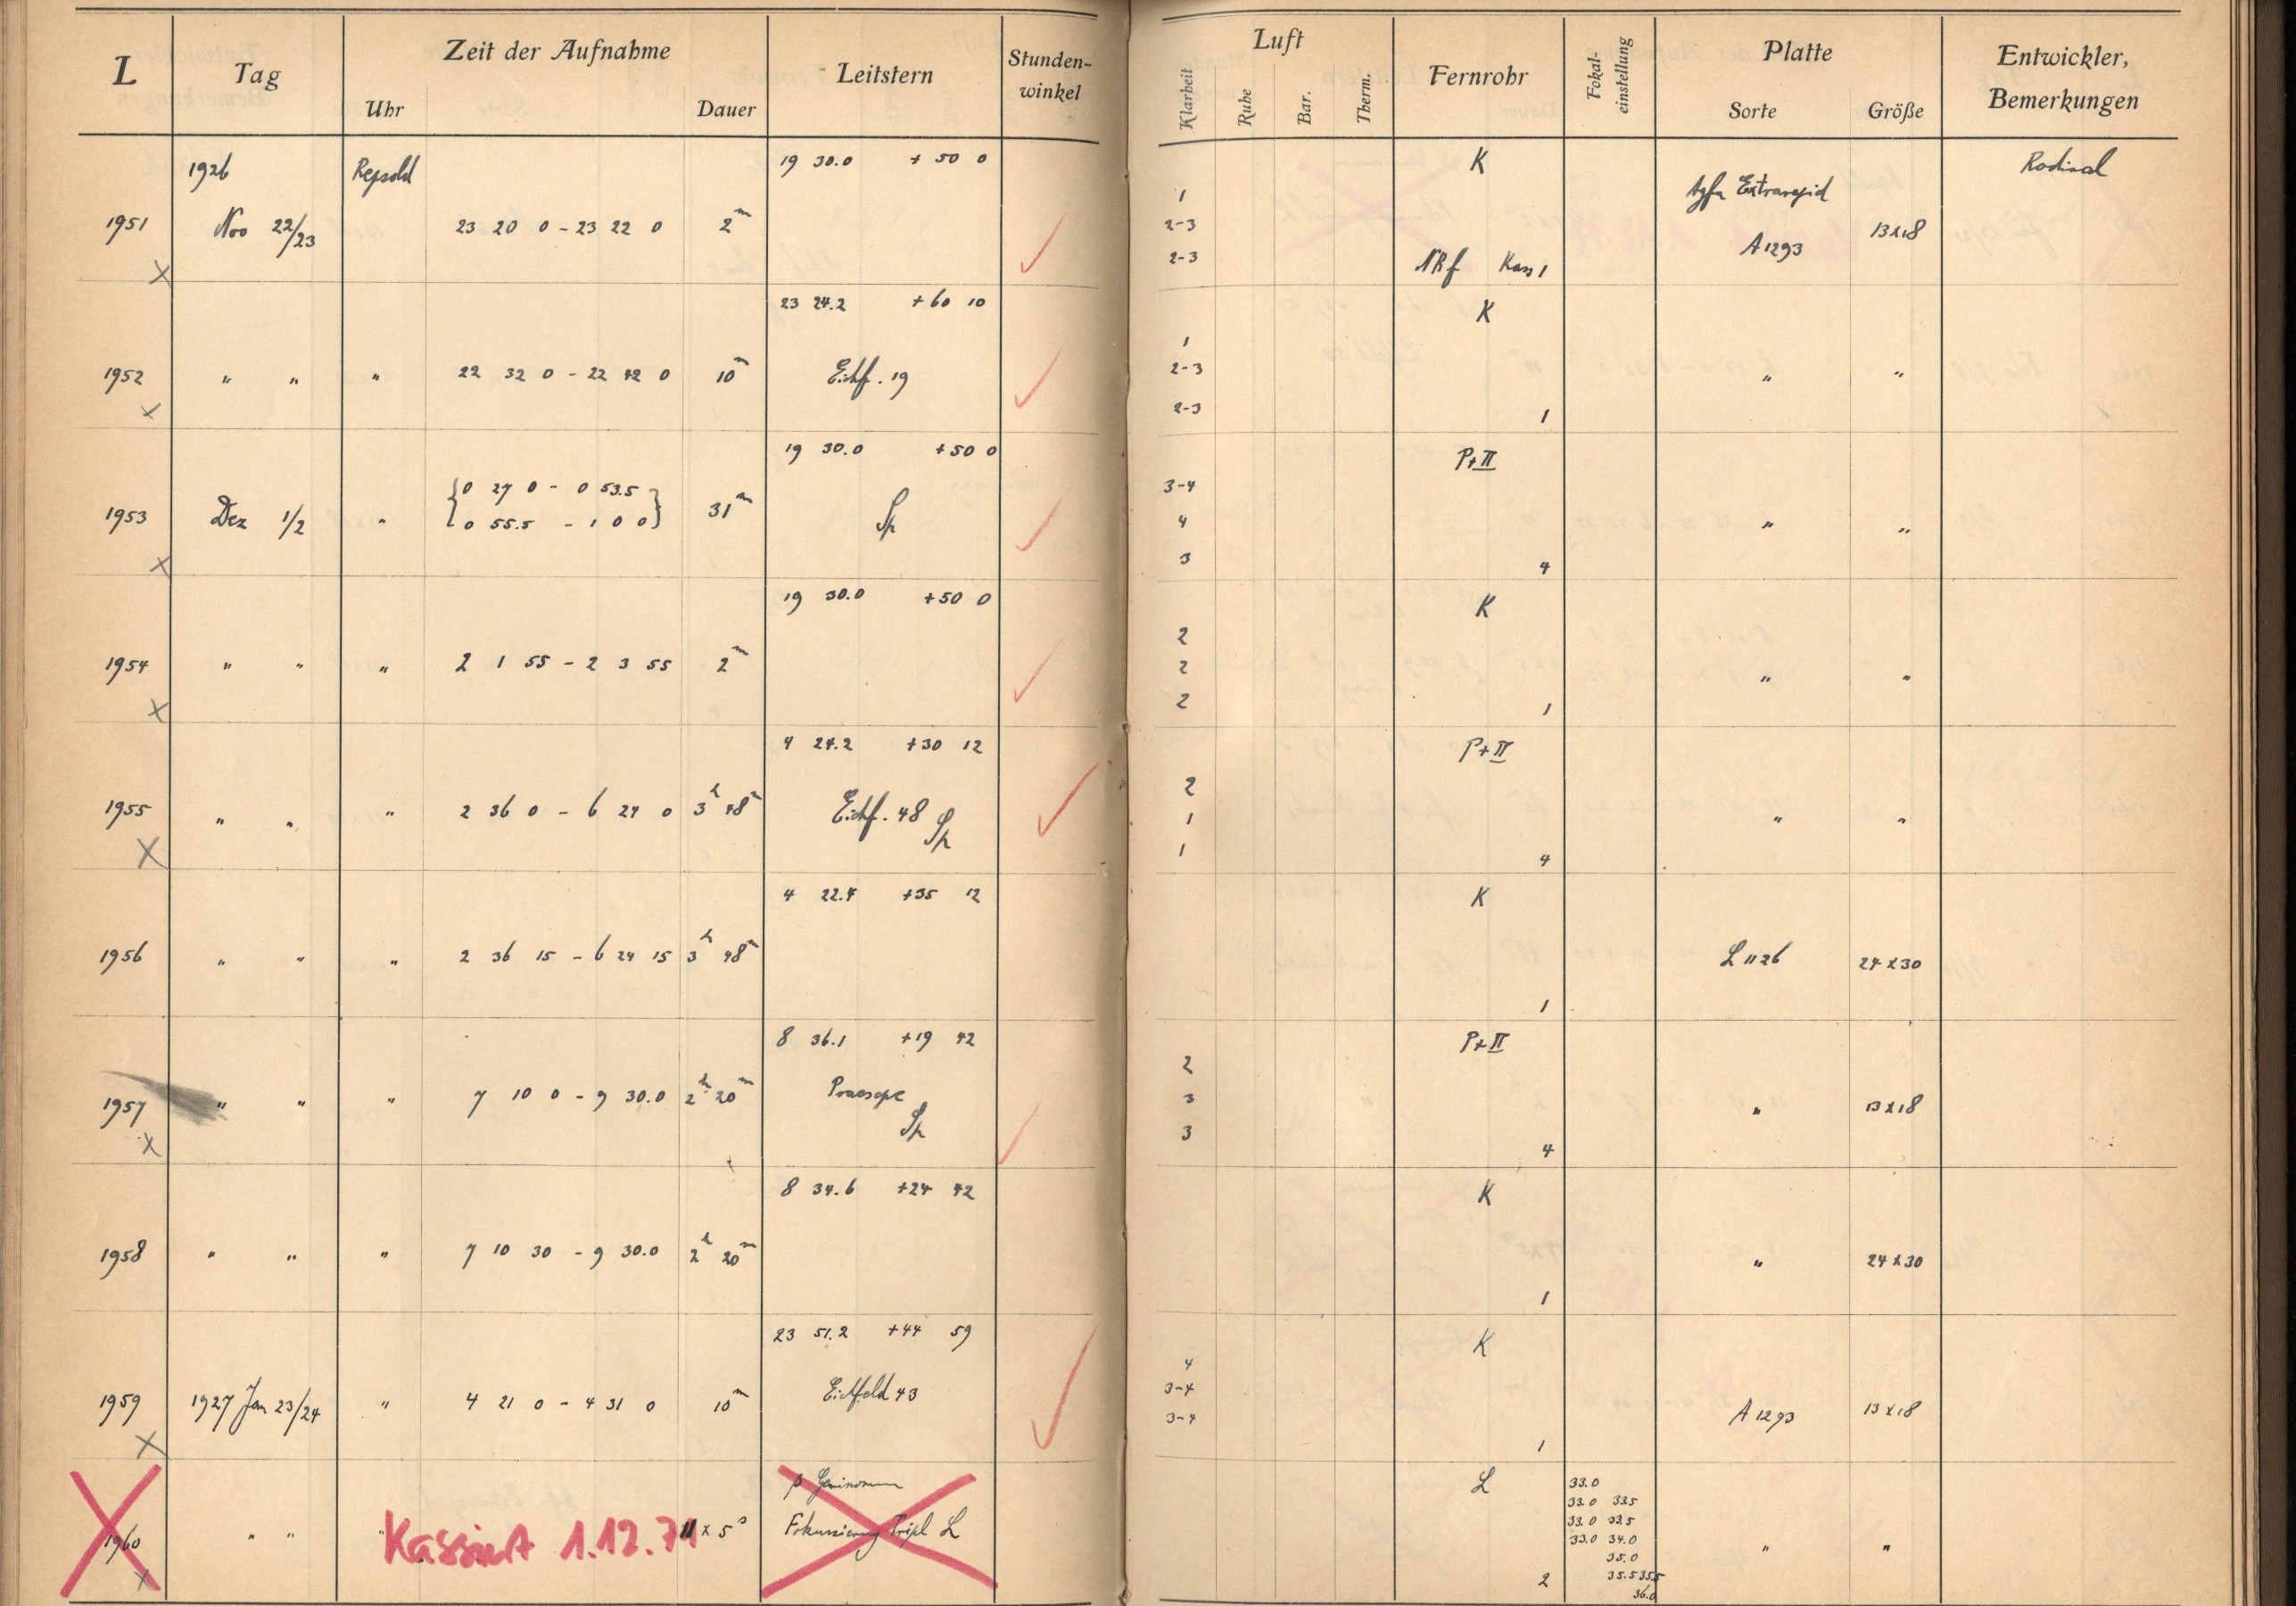 L Tag Zeit der Aufnahme Leitstern Stunden-winkel Luft Fernrohr Fokal-einstellung Platte Entwickler, Bemerkungen
Uhr Dauer Klarheit Ruhe Bar. Therm. Sorte Größe
19 30.0 + 50 0 K Rodinal
1926 Repsold 1 Agfa Extrarapid
1951 Nov 22/23 23 20 0 - 23 22 0 2m 2-3 A 1293 13x18
x 2-3 NRf Kass 1
23 24.2 + 60 10 K
1
1952 " " " 22 32 0 - 22 42 0 10m Eichf. 19 2-3 " "
x 2-3 1
19 30.0 + 50 0 P+II
{0 27 0 - 0 53.5 3-4
1953 Dez 1/2 " 0 55.5 - 1 0 0} 31m Sp 4 " "
x 3 4
19 30.0 + 50 0 K
2
1954 " " " 2 1 55 - 2 3 55 2m 2 " "
x 2 1
4 24.2 +30 12 P+II
2
1955 " " " 2 36 0 - 6 24 0 3h 48m Eichf. 48 Sp 1 " "
x 1 4
4 22.4 +35 12 K
1956 " " " 2 36 15 - 6 24 15 3h 48m L 1126 24x30
1
8 36.1 +19 42 P+II
2
1957 " " " 7 10 0 - 9 30.0 2h 20m Praesepe 3 " 13x18
x Sp 3 4
8 34.6 +24 42 K
1958 " " " 7 10 30 - 9 30.0 2h 20m " 24x30
1
23 51.2 +44 59 K
4
1959 1927 Jan 23/24 " 4 21 0 - 4 31 0 10m Eichfeld 43 3-4 A 1293 13x18
x 3-4 1
β Geminorum L 33.0
33.0 33.5
1960 " " " Kassiert 1.12.71 11 x 5s Fokussierung Tripl L 33.0 33.5 " "
33.0 34.0
35.0
x 2 35.5 35.5
36.0